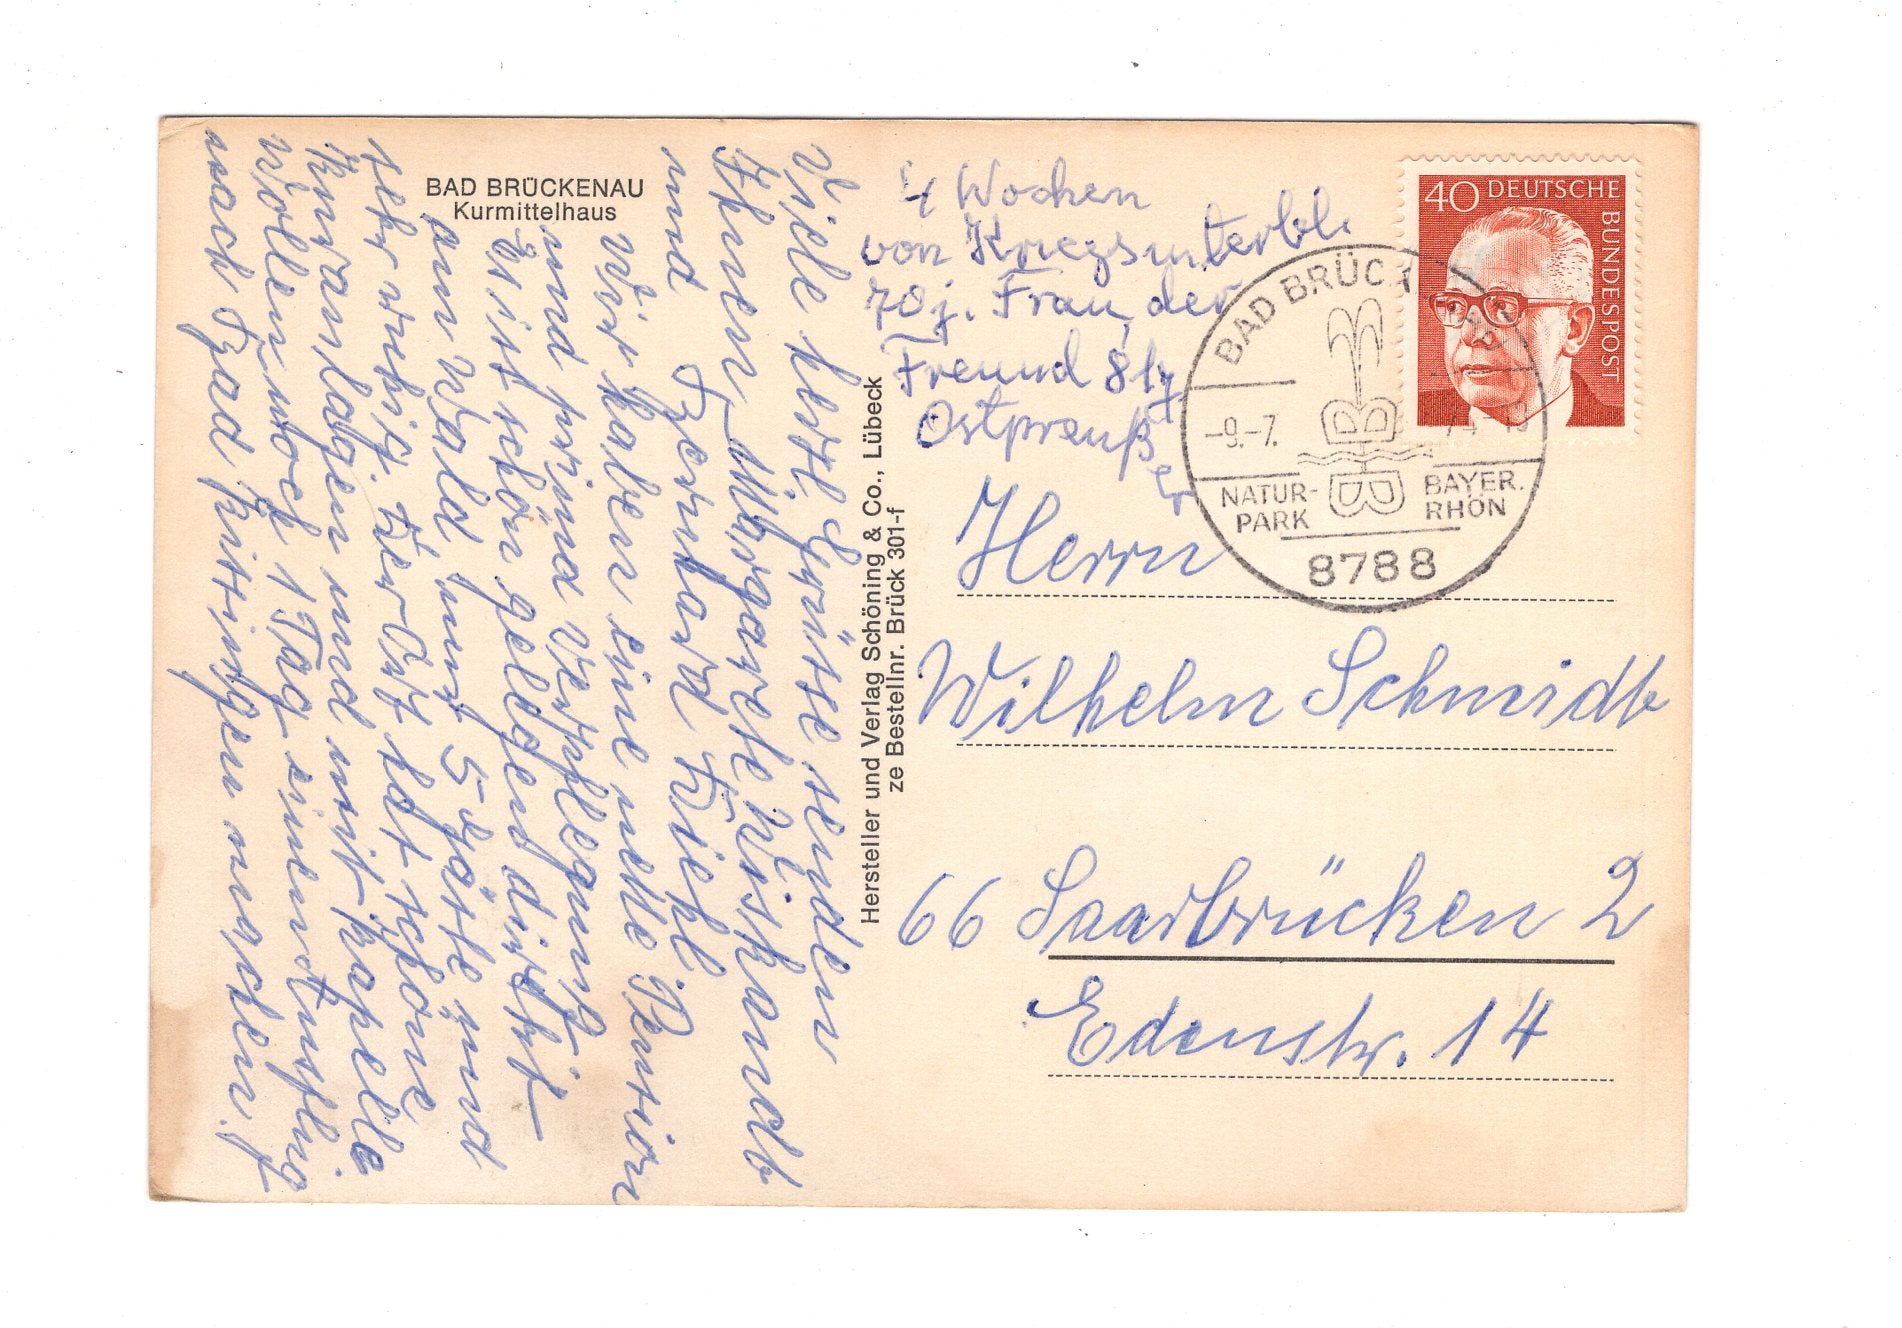 BAD BRÜCKENAU
Kurmittelhaus
Viele herzl. Grüsse senden
Ihnen Margarete Wiskandt
und Gerhard Kiehl.
Wir haben eine nette Pension
und prima Verpflegung.
Es ist schön gelegen direkt
am Wald, nur 5 Gäste und
sehr ruhig. Der Ort hat schöne
Kuranlagen und mit Kapelle
Wollen noch 1 Tag einen Ausflug
nach Bad Kissingen machen.
Hersteller und Verlag Schöning & Co., Lübeck
ze Bestellnr. Brück 301-f
4 Wochen
von Kriegsunterbl.
70j. Frau, der
Freund 81j.
Ostpreuß
er
40 DEUTSCHE BUNDESPOST
BAD BRÜCK
–9.–7.
NATUR-
PARK
BAYER.
RHÖN
8788
Herrn
Wilhelm Schmidt
66 Saarbrücken 2
Edenstr. 14